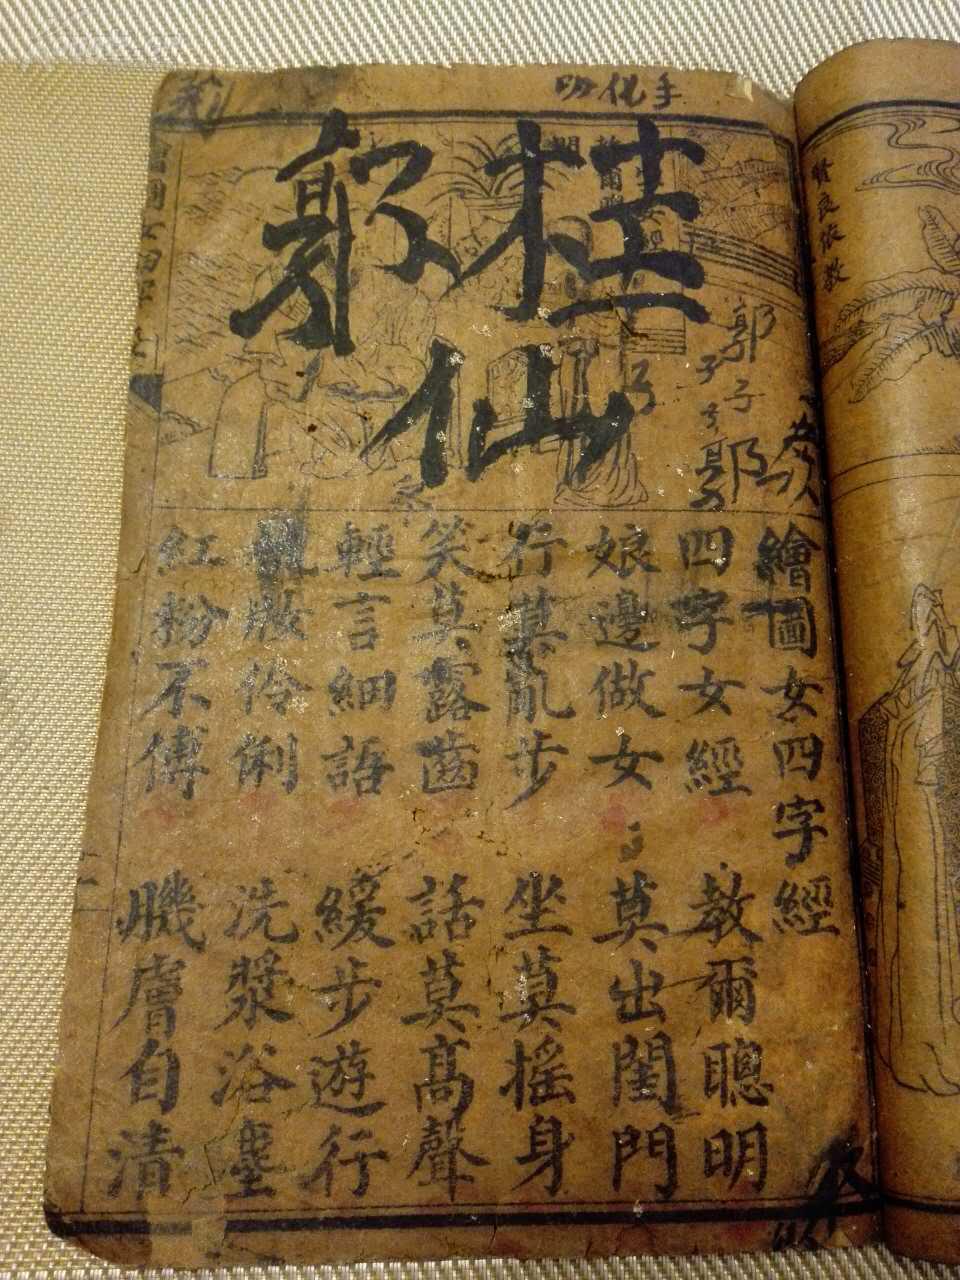 手化明
郭桂
仙
郭子
子
郭
繪圖女四字經
四字女經　教爾聰明
娘邊做女　莫出閨門
行莫亂步　坐莫搖身
笑莫露齒　話莫高聲
輕言細語　緩步遊行
妝伶俐　洗漿浴塵
紅粉不傅　臕膚自清
賢良依教